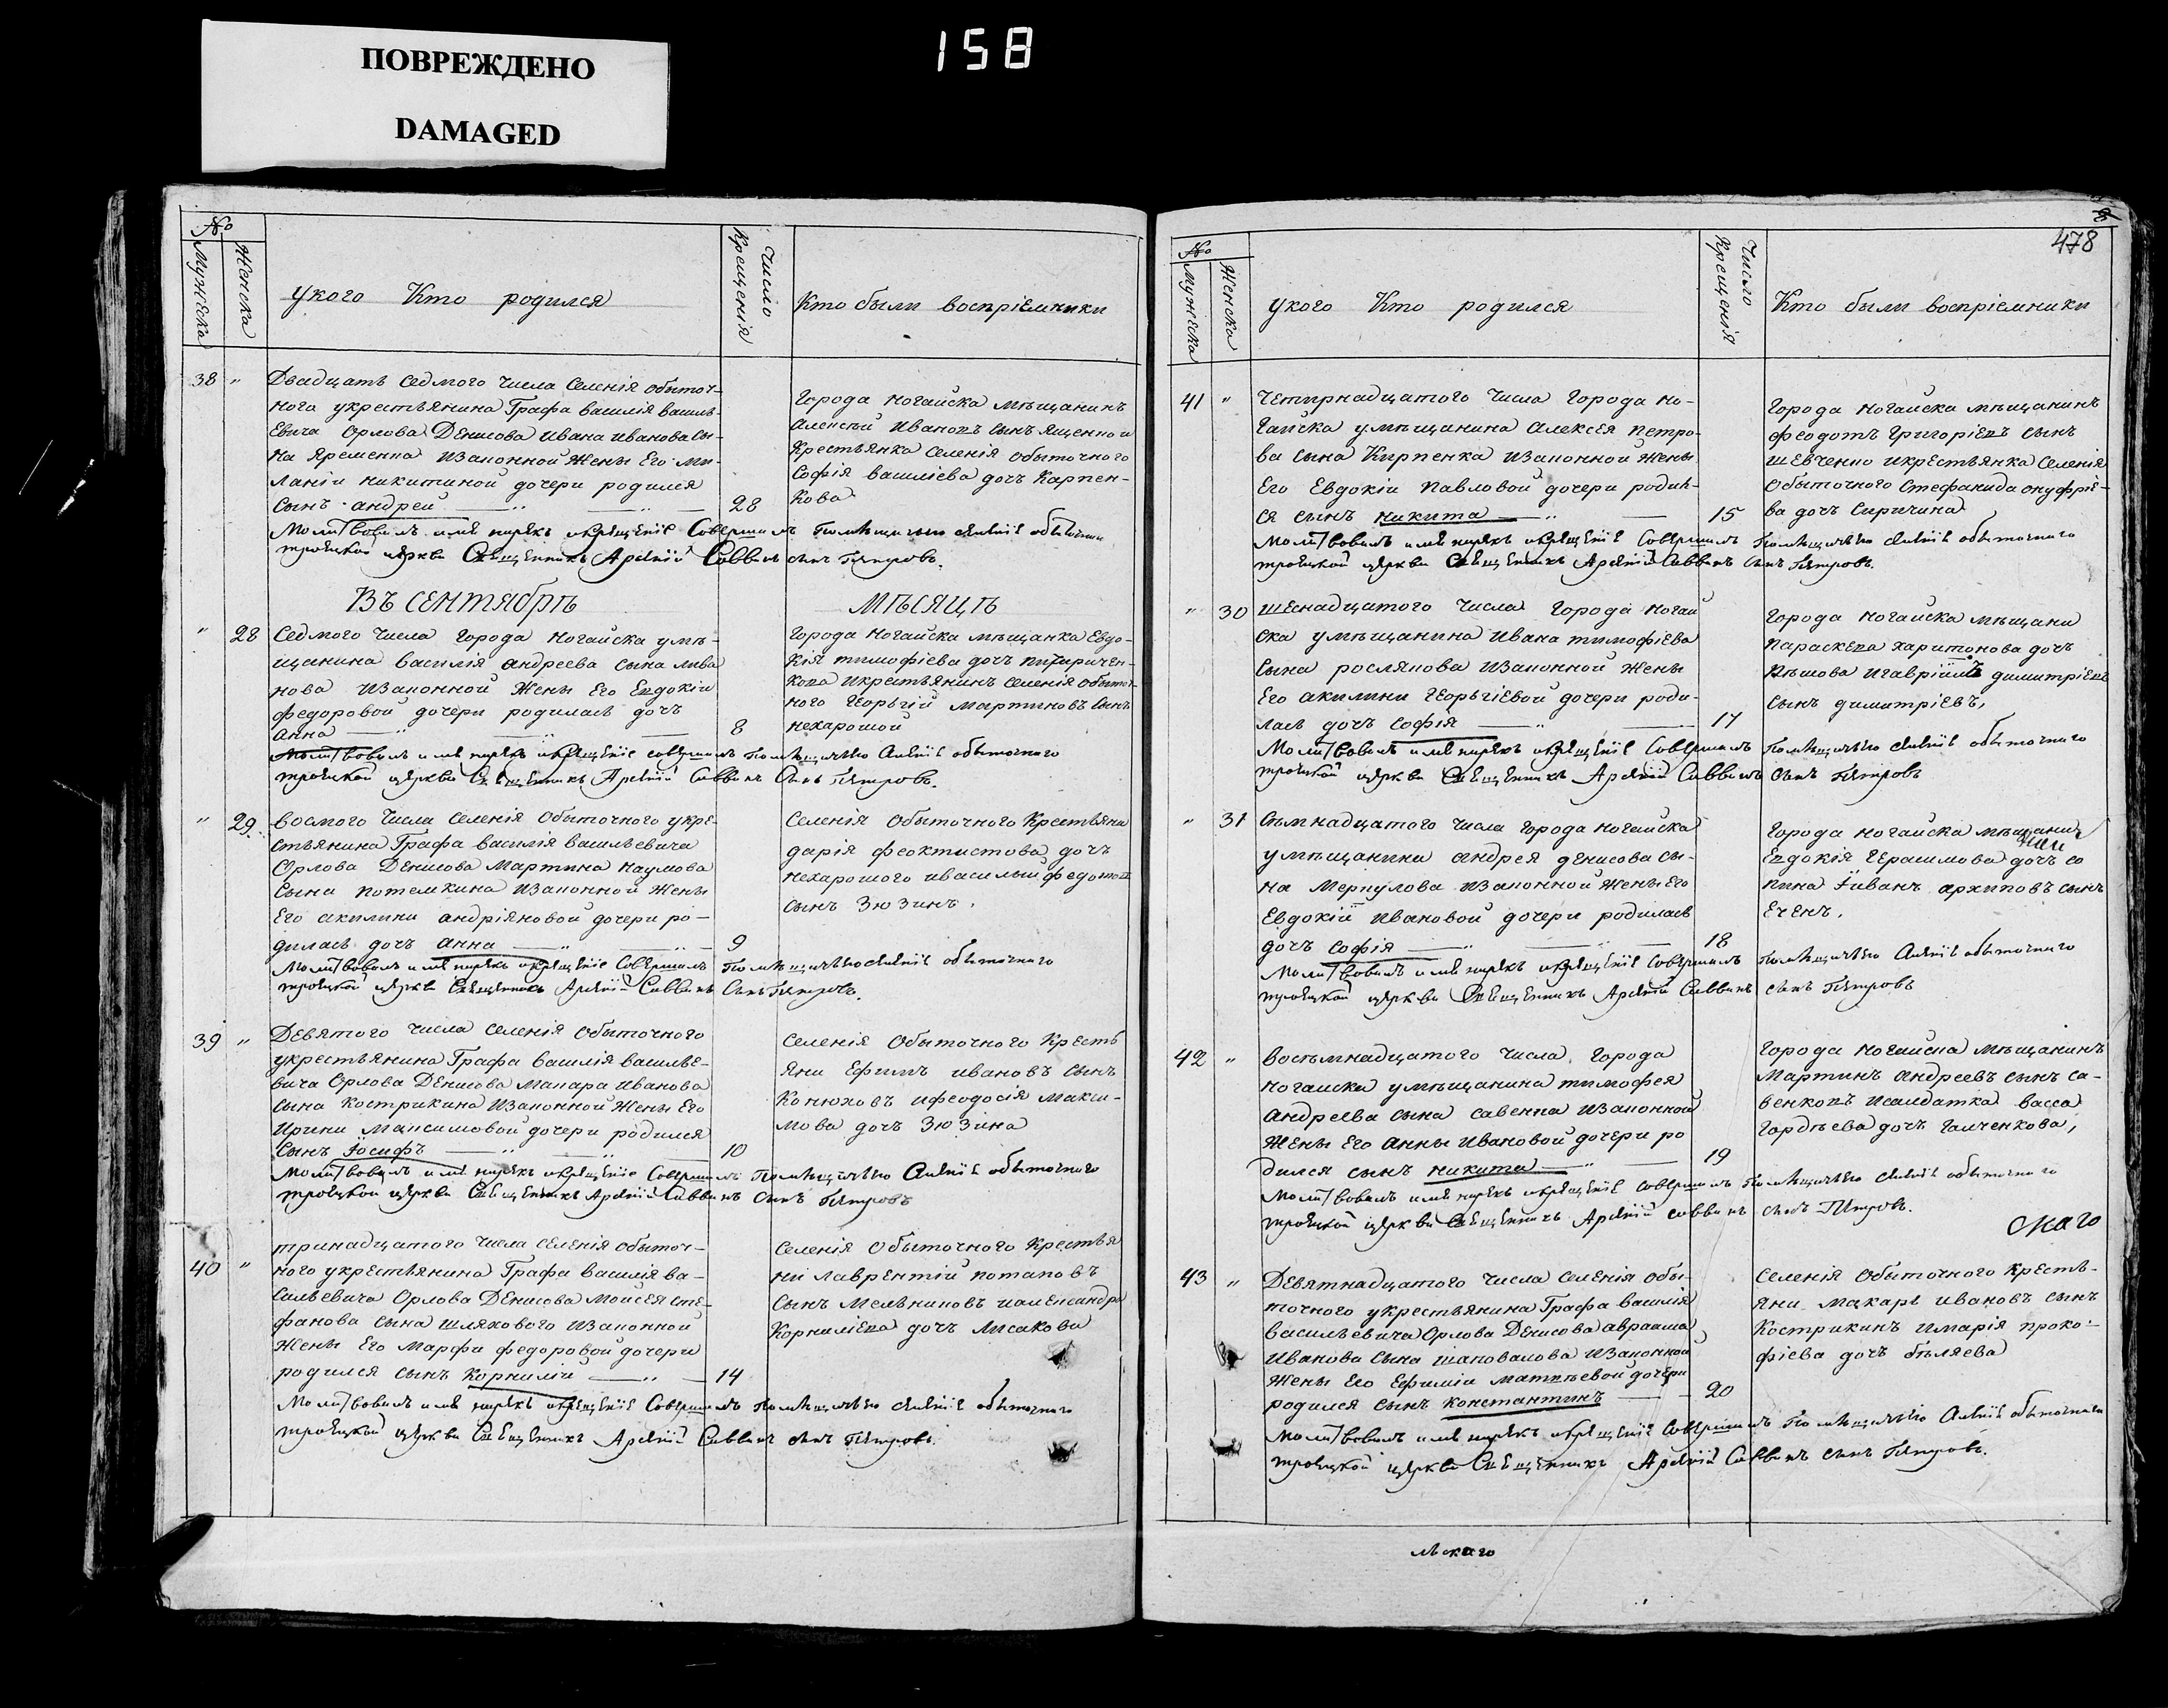 ПОВРЕЖДЕНО
DAMAGED
158
№
Мужеска
Женска
укого Кто родился
Число Крещенія
Кто были воспріемники
38 "
Двадцать седмого числа селенія обыточ-
ного укрестьянина Графа василія василь-
Евича Орлова Денисова Ивана иванова сы-
на Яременка Изаконной Жены Его Ми-
ланіи никитиной дочери родился
сынъ андрей 28
Города Ногайска мѣщанинъ
Алексѣй Ивановъ сынъ Ященко и
Крестьянка Селенія обыточного
Софія василіева дочь Карпен-
кова
Молитвовалъ имя нарекъ икрещеніе Совершилъ Помѣщичьяго селенія обыточного
троецкой церкви Священникъ Арсеній Саввинъ сынъ Петровъ.
Въ сентябрѣ мѣсяцѣ
" 28
Седмого числа города Ногайска умѣ-
щанина василія андреева сына лива
нова Изаконной Жены Его Евдокіи
федоровой дочери родилась дочь
анна 8
Города Ногайска мѣщанка Евдо-
кія тимофіева дочь
кова икрестьянинъ селенія обыточ-
ного георьгій мартиновъ сынъ
нехарошой
Молитвовалъ имя нарекъ икрещеніе совершилъ помѣщичьяго селенія обыточного
троецкой церкви Священникъ Арсеній Саввинъ Сынъ Петровъ.
" 29.
восмого числа селенія Обыточного укре-
стьянина Графа василія васильевича
Орлова Денисова Мартина наумова
сына потемкина Изаконной Жены
Его акилины андріяновой дочери ро-
дилась дочь анна 9
Селенія Обыточного Крестьяни
дарія феоктистова дочь
нехарошого ивасилый федотов
сынъ Зюзинъ.
Молитвовалъ имя нарекъ икрещеніе Совершилъ Помѣщичьяго селенія обыточного
троецкой церкви Священникъ Арсеній Саввинъ Сынъ Петровъ.
39 "
Девятого числа селенія Обыточного
укрестьянина Графа василія василье-
вича Орлова Денисова Макара Иванова
сына Кострикина Изаконной Жены Его
Ирины Максимовой дочери родился
Сынъ Іосифъ 10
Селенія Обыточного Кресть
яни Ефимъ ивановъ сынъ
Конюховъ ифеодосія Макси-
мова дочь Зюзина
Молитвовалъ имя нарекъ икрещеніе Совершилъ Помѣщичьяго Селенія обыточного
троецкой церкви Священникъ Арсеній Саввинъ сынъ Петровъ
40 "
тринадцатого числа селенія обыточ-
ного укрестьянина Графа василія ва-
сильевича Орлова Денисова Моисея сте-
фанова сына шляхового Изаконной
Жены Его Марфы федоровой дочери
родился сынъ Корнилій 14
Селенія Обыточного Крестья
ни лаврентій потаповъ
сынъ Мельниковъ иалександра
Корниліева дочь Лисакова
Молитвовалъ имя нарекъ икрещеніе Совершилъ помѣщичьяго селенія обыточного
троецкой церкви Священникъ Арсеній Саввинъ сынъ Петровъ.
478
№
Мужеска
Женска
укого Кто родился
Число Крещенія
Кто были воспріемники
41 "
четырнадцатого числа города но-
гайска умѣщанина Алексея петро-
ва сына Кирпенка Изаконной Жены
Его Евдокіи Павловой дочери родил-
ся сынъ никита 15
Города Ногайска мѣщанинъ
феодотъ Григоріевъ сынъ
шевченко икрестьянка селенія
Обыточного Стефанида онуфріе-
ва дочь Сиричина
Молитвовалъ имя нарекъ икрещеніе Совершилъ помѣщичьяго селенія обыточного
троецкой церкви Священникъ Арсеній Саввинъ Сынъ Петровъ.
" 30
шеснадцатого числа города ногай
ска умѣщанина ивана тимофіева
сына рослякова Изаконной Жены
Его акилины георьгіевой дочери роди-
лась дочь софія 17
Города ногайска мѣщани
параскева харитонова дочь
игавріилъ димитріевъ
сынъ димитріевъ,
Молитвовалъ имя нарекъ икрещеніе Совершилъ помѣщичьяго селенія обыточного
троецкой церкви Священникъ Арсеній Саввинъ сынъ Петровъ
" 31
Сѣмнадцатого числа города ногайска
умѣщанина андрея денисова сы-
на Меркулова Изаконной Жены Его
Евдокіи Ивановой дочери родилась
дочь софія 18
Города ногайска мѣщани
Евдокія Герасимова дочь со
пина Іиванъ архиповъ сынъ
Еченъ.
Молитвовалъ имя нарекъ икрещеніе совершилъ помѣщичьяго Селенія обыточного
троецкой церкви Священникъ Арсеній Саввинъ сынъ Петровъ
42 "
восьмнадцатого числа города
ногайска умѣщанина тимофея
андреева сына савенка Изаконной
Жены Его Анны Ивановой дочери ро
дился сынъ никита 19
Города Ногайска мѣщанинъ
Мартинъ андреевъ сынъ са-
венковъ исалдатка васса
Гордѣева дочь галченкова,
Молитвовалъ имя нарекъ икрещеніе Совершилъ помѣщичьяго селенія обыточного
троецкой церкви Священникъ Арсеній саввинъ сынъ Петровъ.
скаго
43 "
Девятнадцатого числа селенія обы-
точного укрестьянина Графа василія
васильевича Орлова Денисова авраама
Иванова сына шаповалова Изаконной
Жены Его Ефиміи матвѣевой дочери
родился сынъ константинъ 20
Селенія Обыточного Кресть-
яни Макаръ ивановъ сынъ
Кострикинъ имарія проко-
фіева дочь бѣляева
Молитвовалъ имя нарекъ икрещеніе Совершилъ помѣщичьяго Селенія обыточного
троецкой церкви Священникъ Арсеній Саввинъ сынъ Петровъ.